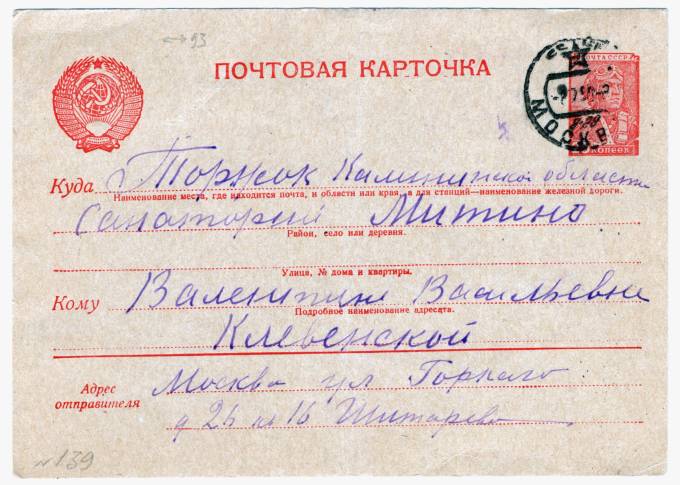 93
ПОЧТОВАЯ КАРТОЧКА
ПОЧТА СССР
МОСКВА
КОПЕЕК
Куда Торжок Калининской области
Наименование места, где находится почта, и области или края, а для станций—наименование железной дороги.
Санаторий Митино
Район, село или деревня.
Улица, № дома и квартиры.
Кому Валентине Васильевне
Подробное наименование адресата.
Клевенской
Адрес отправителя Москва ул Горького
д 25 кв 16
№139